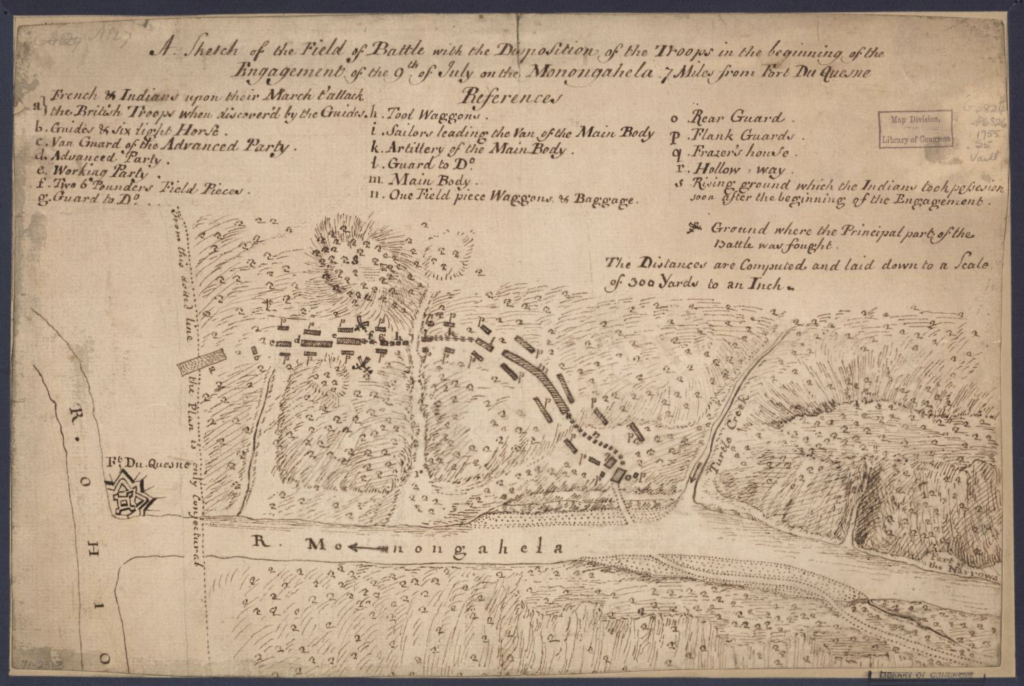 A Sketch of the Field of Battle with the Disposition of the Troops in the beginning of the
Engagement of the 9th of July on the Monongahela 7 Miles from Fort Du Quesne
References
a} French & Indians upon their March t'attack
the British Troops when discover'd by the Guides.
b. Guides & six light Horse.
c. Van Guard of the Advanced Party.
d. Advanced Party.
e. Working Party.
f. Two 6 Pounders Field Pieces.
g. Guard to Do.
h. Tool Waggons.
i. Sailors leading the Van of the Main Body
k. Artillery of the Main Body.
l. Guard to Do.
m Main Body.
n. One Field piece Waggons & Baggage.
o Rear Guard.
p. Flank Guards.
q Frazer's house.
r. Hollow way.
s Rising ground which the Indians took possesion
soon after the beginning of the Engagement.
Ground where the Principal part of the
Battle was fought.
The Distances are Computed and laid down to a Scale
of 300 Yards to an Inch.
Map Division,
Library of Congress
1755
Vault
From this dotted line the Plan is only Conjectural
Ft. Du. Quesne
R. OHIO
R. Monongahela
Turtle Creek
Part of
the Narrows
LIBRARY OF CONGRESS